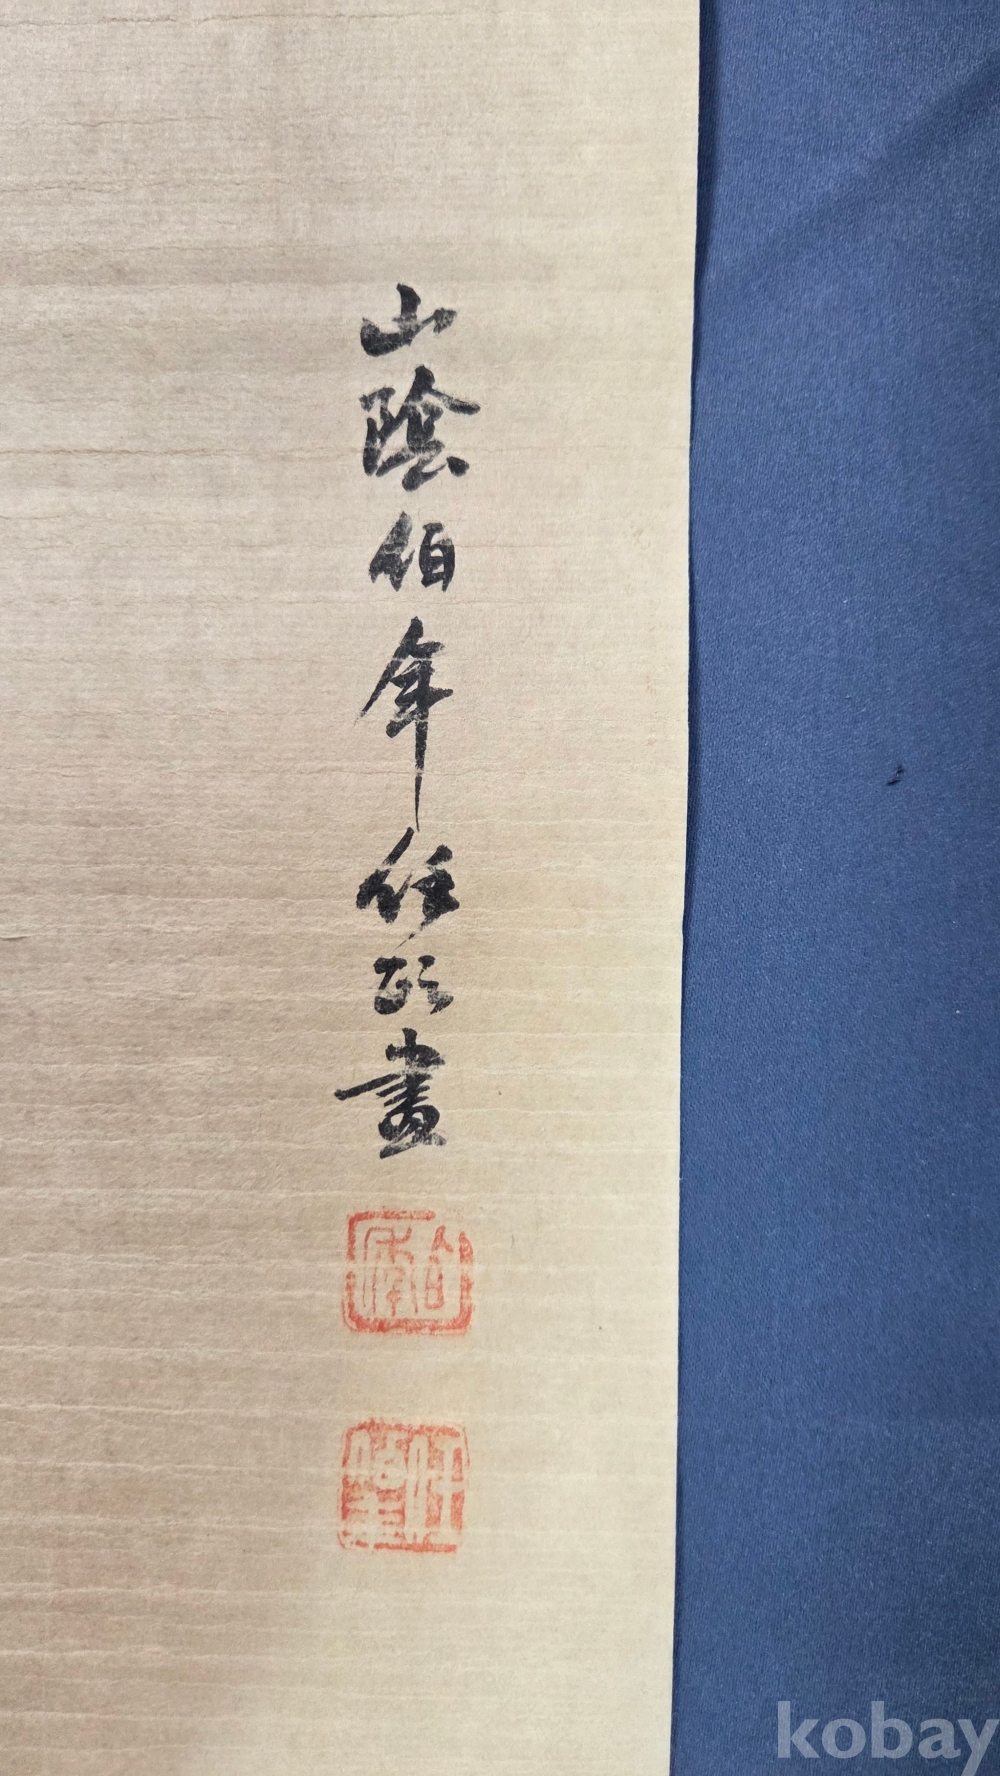 山陰伯年任頤畫
伯年
任
kobay